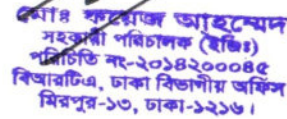 মোঃ ফয়েজ আহম্মেদ
সহকারী পরিচালক (ইঞ্জিঃ)
পরিচিতি নং-২০১৪২০০০৪৫
বিআরটিএ, ঢাকা বিভাগীয় অফিস
মিরপুর-১৩, ঢাকা-১২১৬।